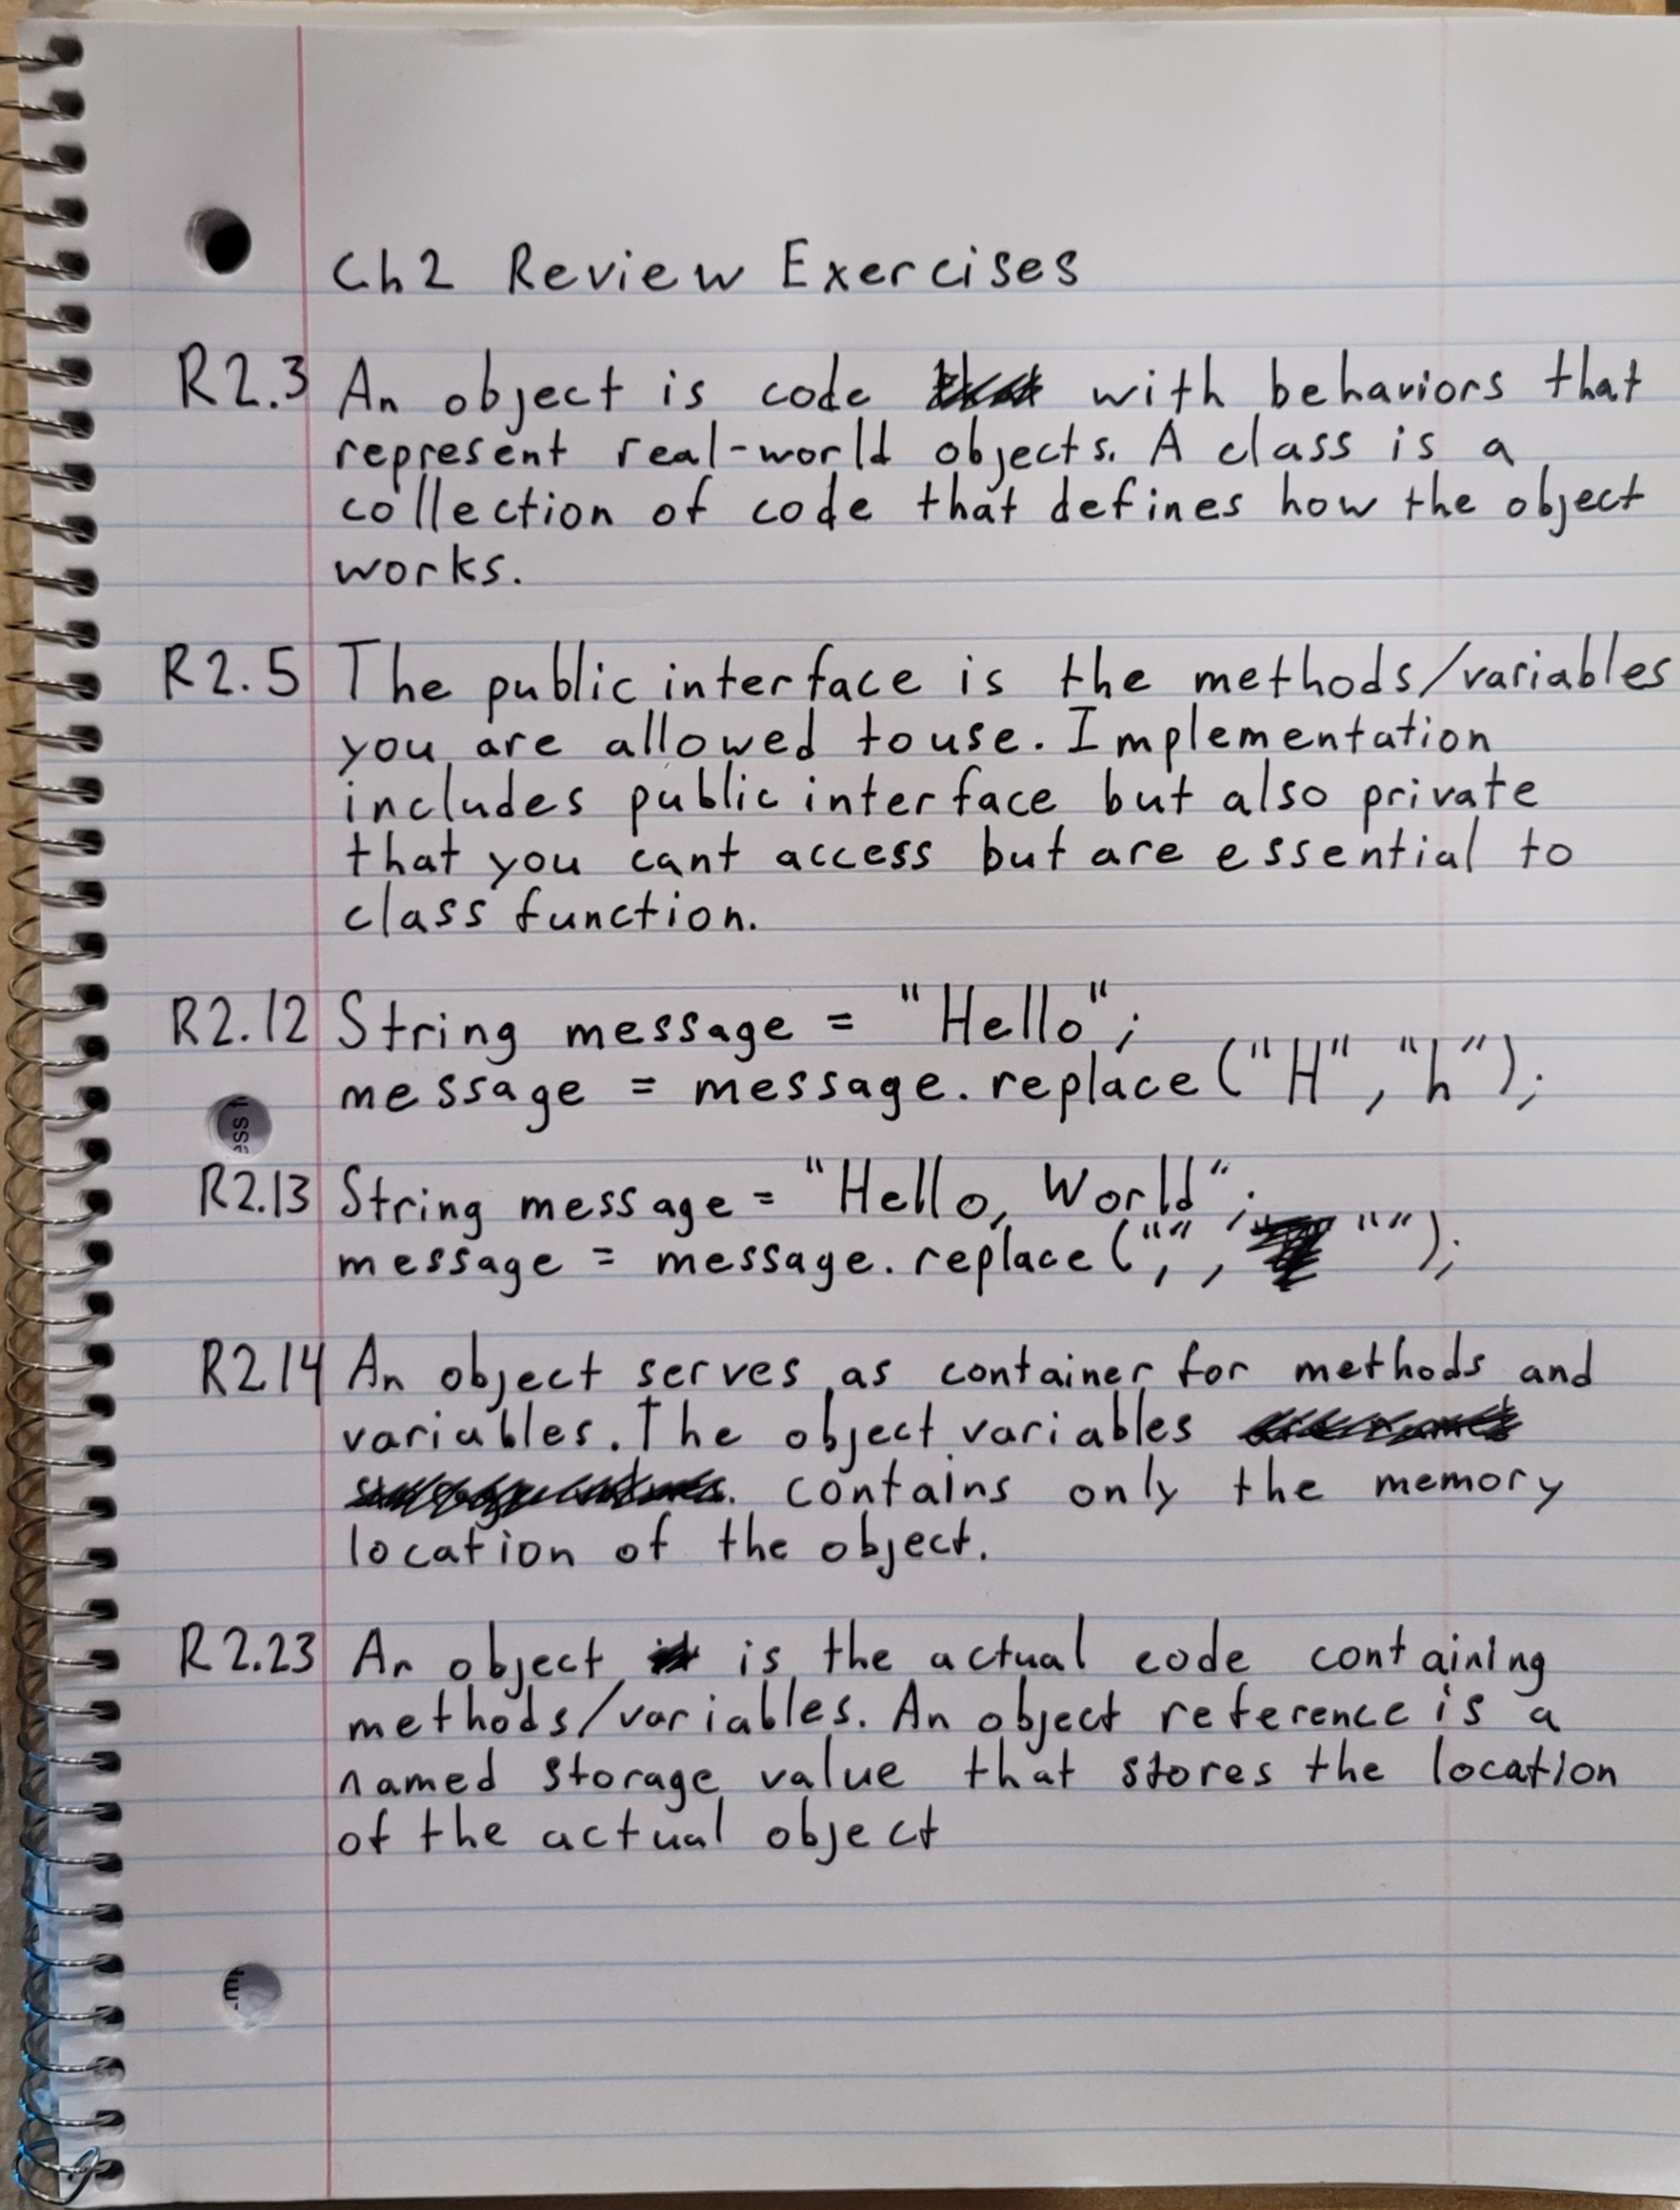 Ch2 Review Exercises
R2.3 An object is code with behaviors that
represent real-world objects. A class is a
collection of code that defines how the object
works.
R2.5 The public interface is the methods/variables
you are allowed to use. Implementation
includes public interface but also private
that you cant access but are essential to
class function.
R2.12 String message = "Hello";
message = message.replace("H", "h");
R2.13 String message = "Hello, World";
message = message.replace(",", "");
R2.14 An object serves as container for methods and
variables. The object variables
contains only the memory
location of the object.
R2.23 An object is the actual code containing
methods/variables. An object reference is a
named storage value that stores the location
of the actual object